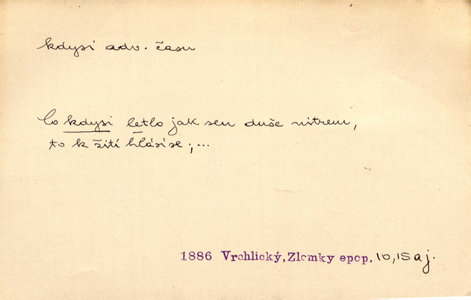 kdysi adv. času
Co kdysi letlo jak sen duše nitrem,
to k žití hlásí se; ...
1886 Vrchlický, Zlomky epop. 10, 15 aj.